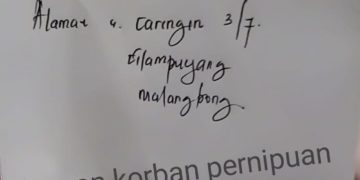 Alamat : Caringin 3/7.
Cilampuyang
malangbong.
korban pernipuan